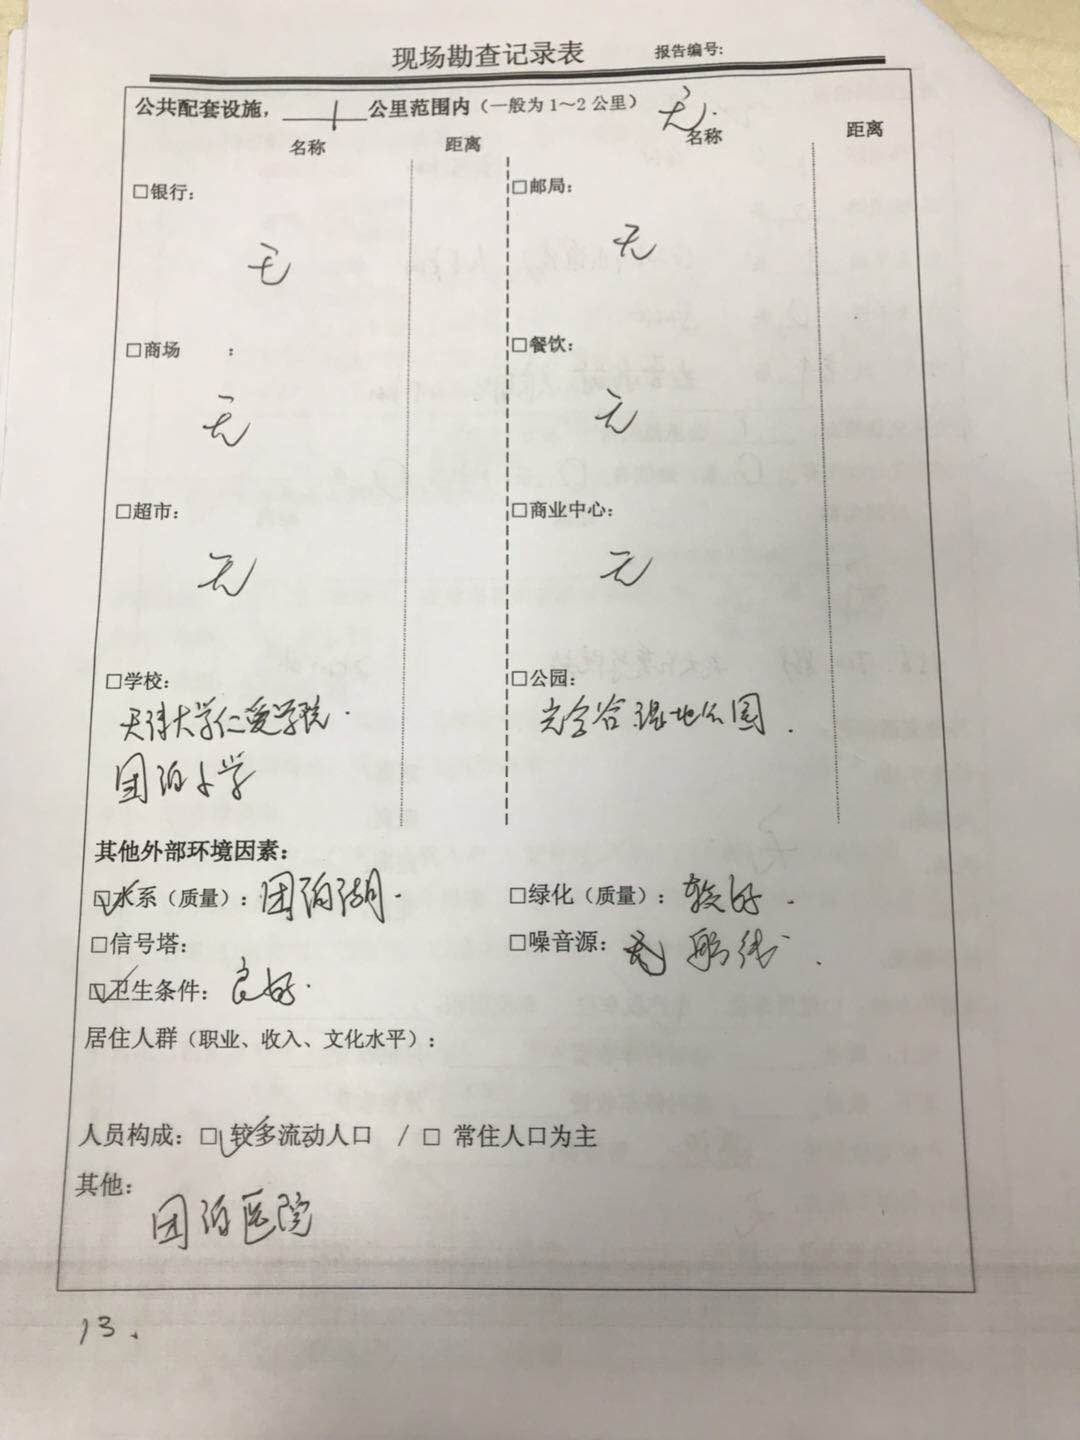 现场勘查记录表 报告编号:
公共配套设施，1公里范围内（一般为 1～2 公里） 无.
名称 距离 名称 距离
□银行: □邮局:
无 无
□商场 : □餐饮:
无 无
□超市: □商业中心:
无 无
□学校: □公园:
天津大学仁爱学院. 光合谷湿地公园.
团泊小学
其他外部环境因素:
☑水系（质量）: 团泊湖. □绿化（质量）: 较好.
□信号塔: □噪音源:
☑卫生条件: 良好.
居住人群（职业、收入、文化水平）:
人员构成: ☑ 较多流动人口 / □ 常住人口为主
其他:
团泊医院
13.